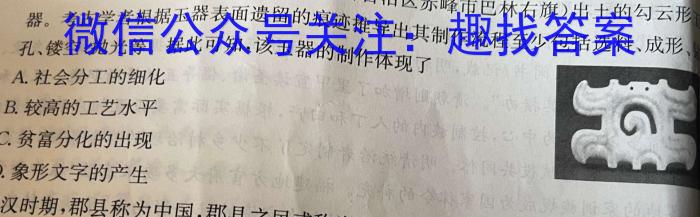 自治区赤峰市巴林右旗)出土的勾云形
器。考古学者根据玉器表面遗留的痕迹推导出其制作流程至少包括选料、成形、
微信公众号关注：趣找答案
孔、镂 抛光等。据此可知,该玉器的制作体现了
A.社会分工的细化
B.较高的工艺水平
C.贫富分化的出现
D.象形文字的产生
汉时期,郡县称为中国,郡县之